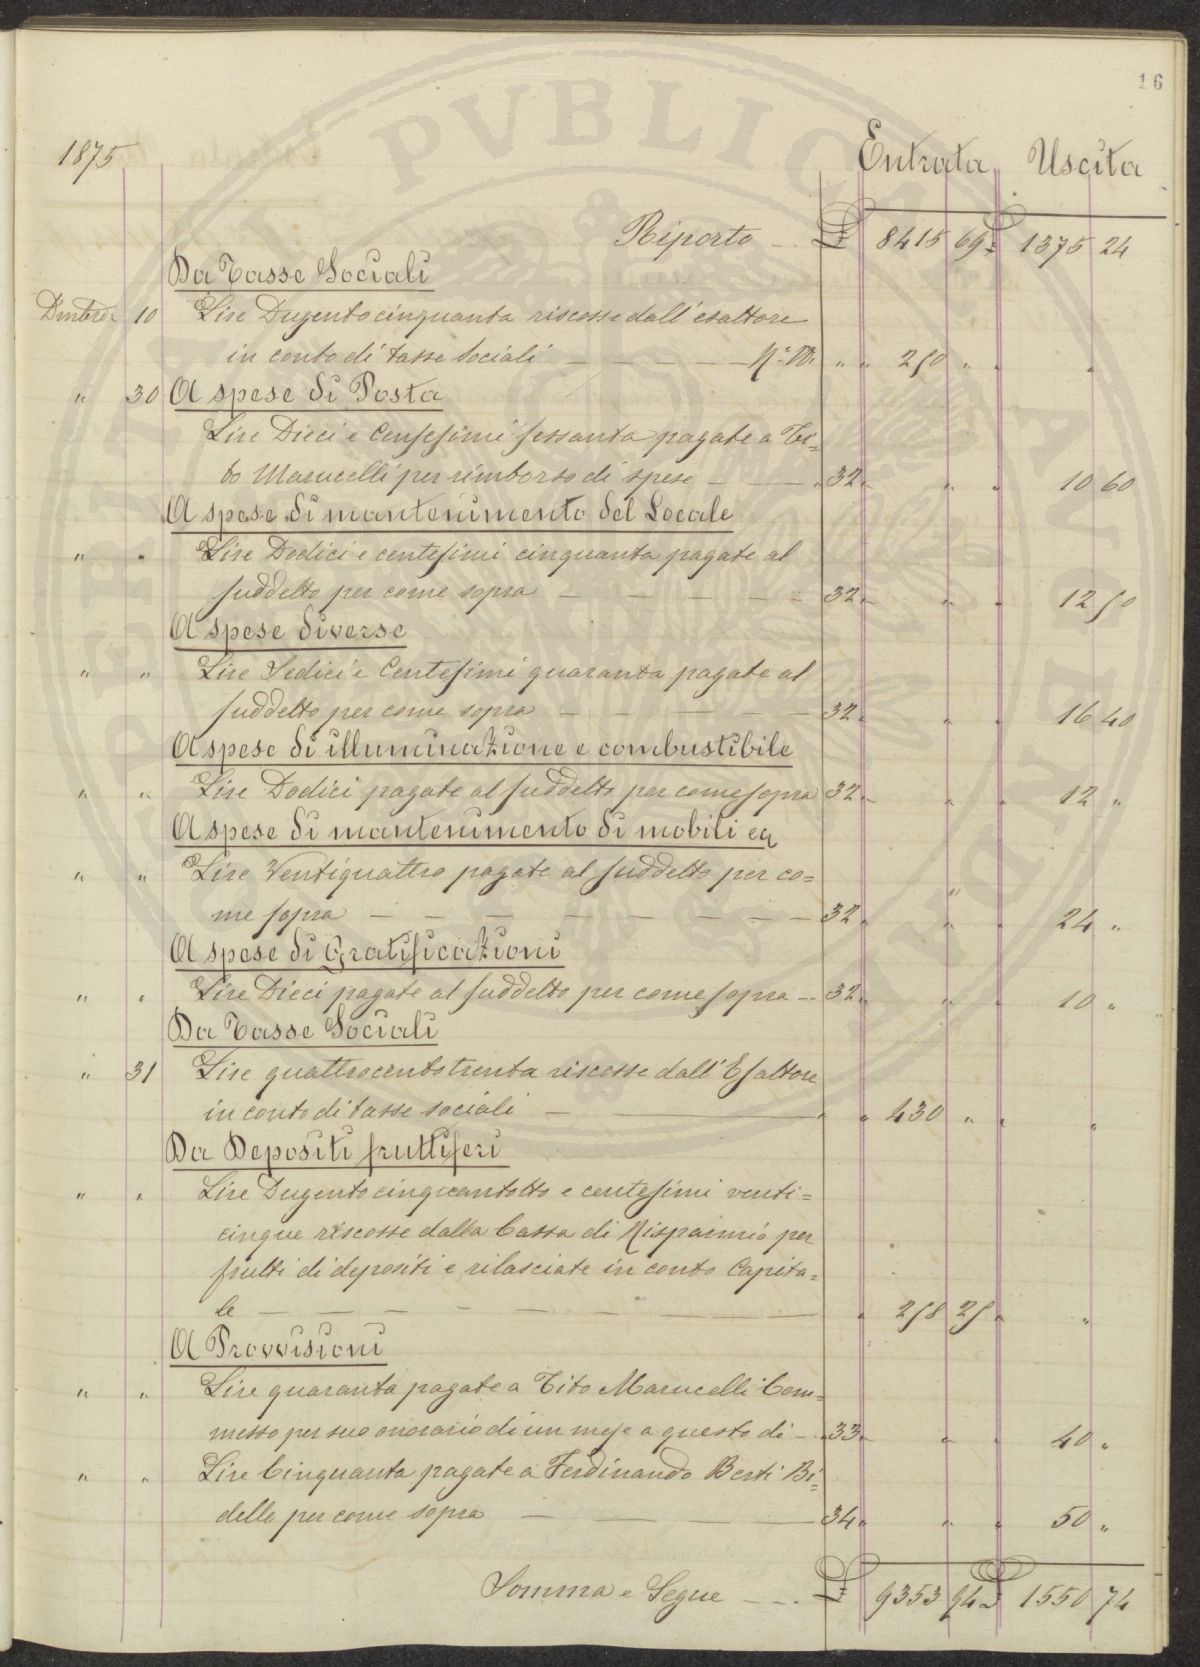 16
1875
Entrata Uscita
Riporto £ 8415 69 £ 1375 24
Da Tasse Sociali
Dmbre 10 Lire Dugentocinquanta riscosse dall'esattore
in conto di tasse sociali " " 250 " " "
" 30 A spese di Posta
Lire Dieci e Centesimi sessanta pagate a Ti=
to Marucelli per rimborso di spese " 32 " " " 10 60
A spese di mantenimento del Locale
" " Lire Dodici e centesimi cinquanta pagate al
suddetto per come sopra 32 " " " 12 50
A spese diverse
" " Lire Sedici e Centesimi quaranta pagate al
suddetto per come sopra 32 " " " 16 40
A spese di illuminazione e combustibile
" " Lire Dodici pagate al suddetto per come sopra 32 " " " 12 "
A spese di mantenimento di mobili ec
" " Lire Ventiquattro pagate al suddetto per co=
me sopra 32 " " " 24 "
A spese di Gratificazioni
" " Lire Dieci pagate al suddetto per come sopra 32 " " " 10 "
Da Tasse Sociali
" 31 Lire quattrocentotrenta riscosse dall'Esattore
in conto di tasse sociali " " 430 " " "
Da Depositi fruttiferi
" " Lire Dugentocinquantotto e centesimi venti=
cinque riscosse dalla Cassa di Risparmio per
frutti di depositi e rilasciate in conto Capita=
le " 258 25 " "
A Provvisioni
" " Lire quaranta pagate a Tito Marucelli Com=
messo per suo onorario di un mese a questo dì " 33 " " " 40 "
" " Lire Cinquanta pagate a Ferdinando Berti Bi=
dello per come sopra 34 " " " 50 "
Somma e Segue £ 9353 94 £ 1550 74